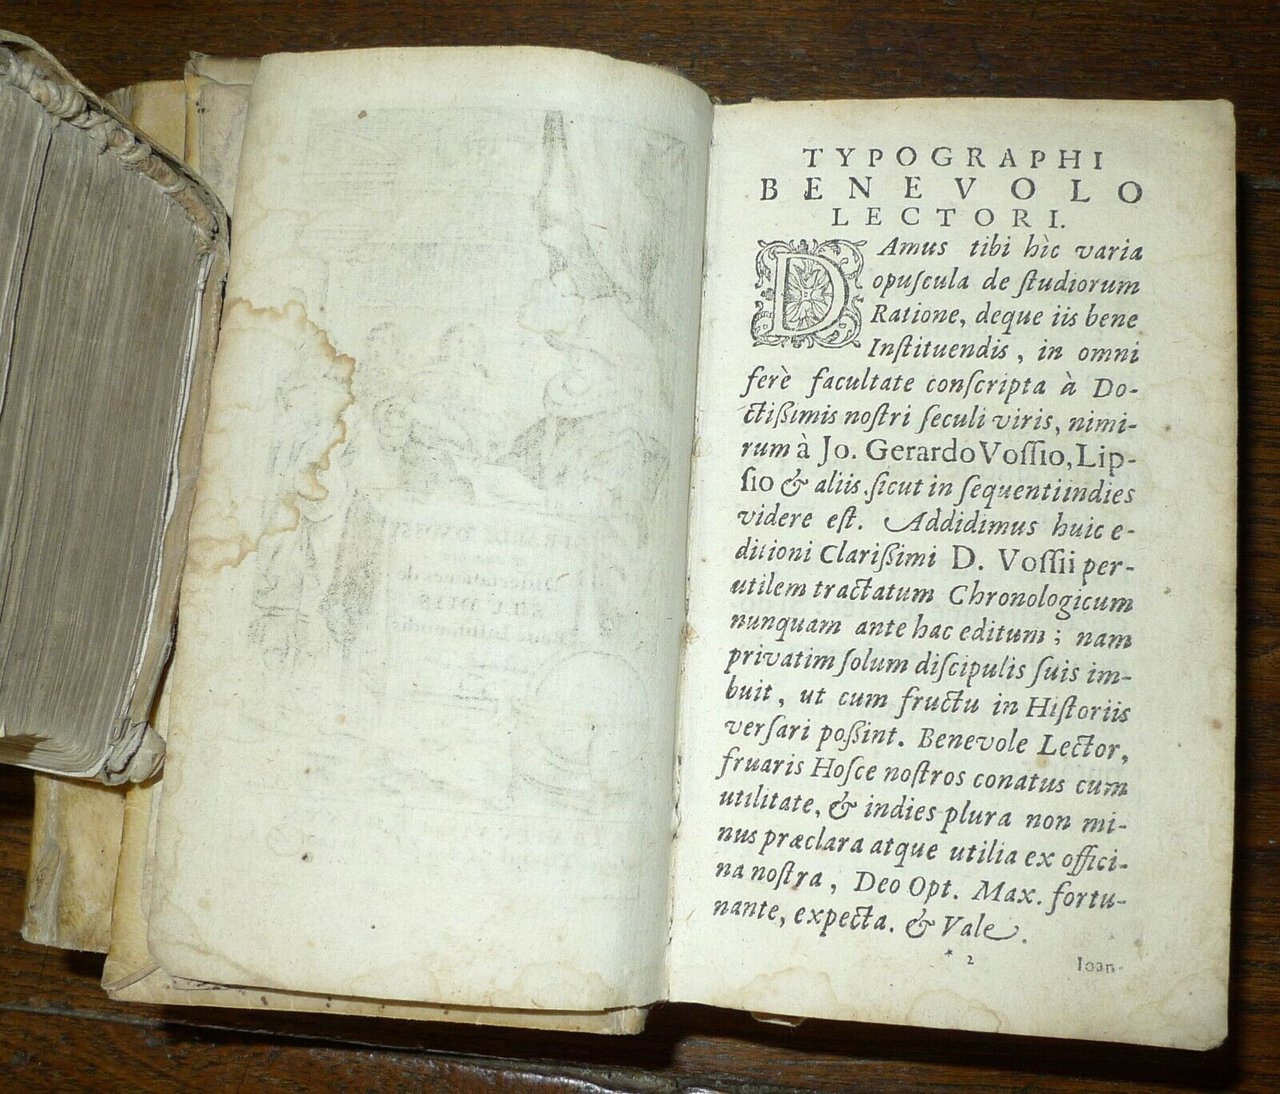 TYPOGRAPHI
BENEVOLO
LECTORI.
DAmus tibi hìc varia
opuscula de ſtudiorum
Ratione, deque iis bene
Inſtituendis, in omni
ferè facultate conſcripta à Do-
ctiſsimis noſtri ſeculi viris, nimi-
rum à Jo. Gerardo Voſſio, Lip-
ſio & aliis. ſicut in ſequentiindies
videre eſt. Addidimus huic e-
ditioni Clariſsimi D. Voſſii per-
utilem tractatum Chronologicum
nunquam ante hac editum; nam
privatim ſolum diſcipulis ſuis im-
buit, ut cum fructu in Hiſtoriis
verſari poſsint. Benevole Lector,
fruaris Hoſce noſtros conatus cum
utilitate, & indies plura non mi-
nus præclara atque utilia ex offici-
na noſtra, Deo Opt. Max. fortu-
nante, expecta. & Vale.
* 2
Ioan-